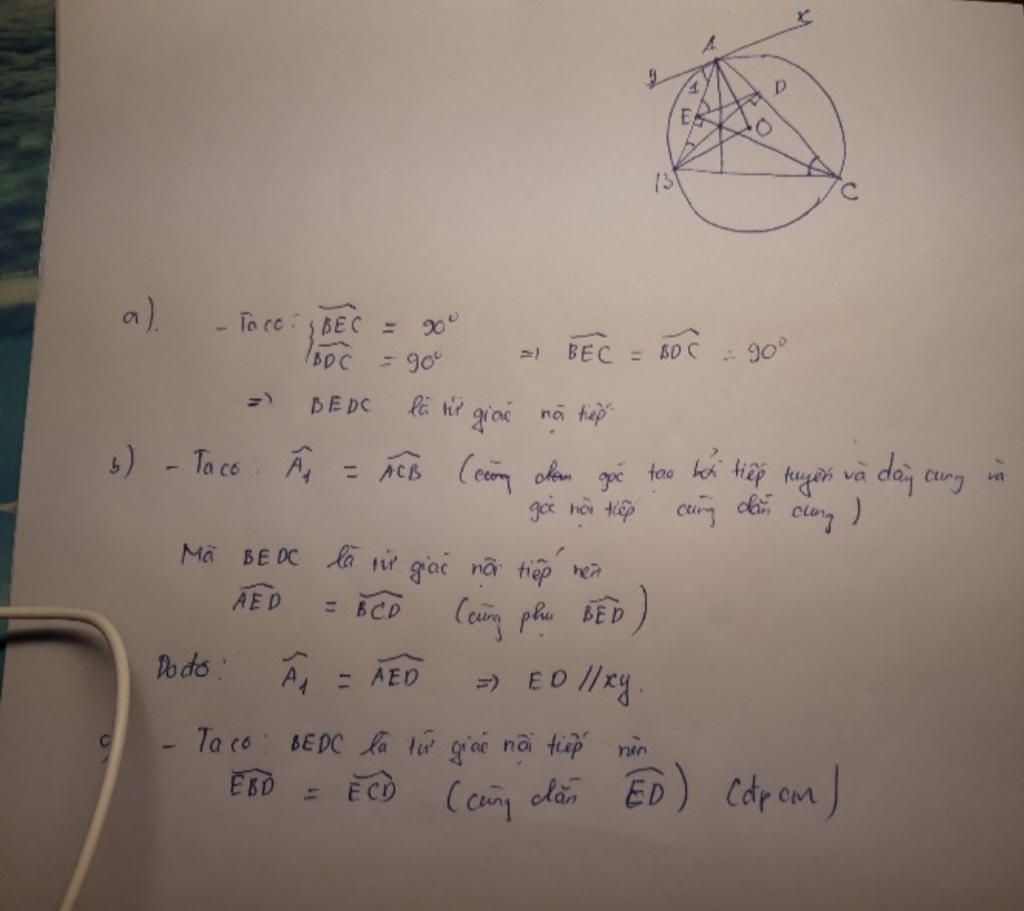 x
A
y
1
D
E
O
B
C
a). - Ta có: { \widehat{BEC} = 90°
\widehat{BDC} = 90° => \widehat{BEC} = \widehat{BDC} = 90°
=> BEDC là tứ giác nội tiếp
b) - Ta có: \widehat{A}_1 = \widehat{ACB} (cùng góc tạo bởi tiếp tuyến và dây cung và
góc nội tiếp cùng chắn cung)
Mà BEDC là tứ giác nội tiếp nên
\widehat{AED} = \widehat{BCD} (cùng phụ \widehat{BED})
Do đó: \widehat{A}_1 = \widehat{AED} => ED // xy.
- Ta có: BEDC là tứ giác nội tiếp nên
\widehat{EBD} = \widehat{ECD} (cùng chắn \widehat{ED}) (đpcm)